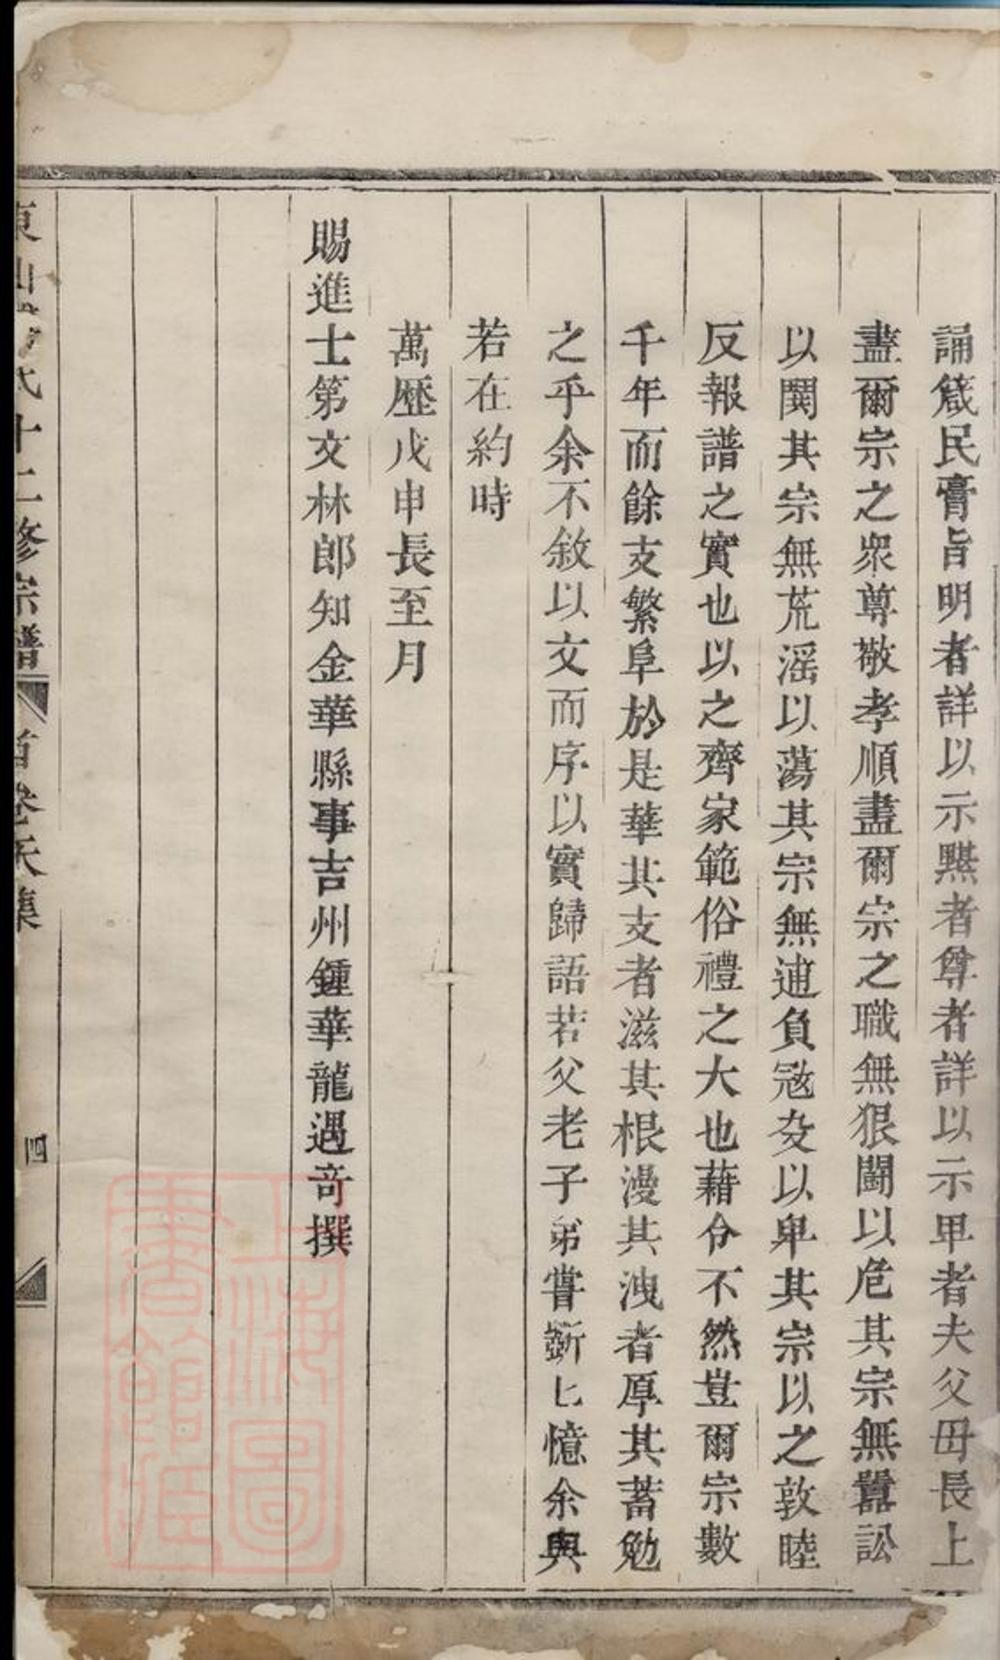 誦箴民膏旨明者詳以示黙者尊者詳以示卑者夫父母長上
盡爾宗之衆尊敬孝順盡爾宗之職無狠鬭以危其宗無囂訟
以鬩其宗無荒滛以蕩其宗無逋負宼攻以卑其宗以之敦睦
反報譜之實也以之齊家範俗禮之大也藉令不然豈爾宗數
千年而餘支繁阜於是華其支者滋其根漫其洩者厚其蓄勉
之乎余不敘以文而序以實歸語若父老子弟嘗斷匕憶余與
若在約時
萬歷戊申長至月
賜進士第文林郎知金華縣事吉州鍾華龍遇竒撰
十二修宗譜
首卷天集
四
上海圖書館藏